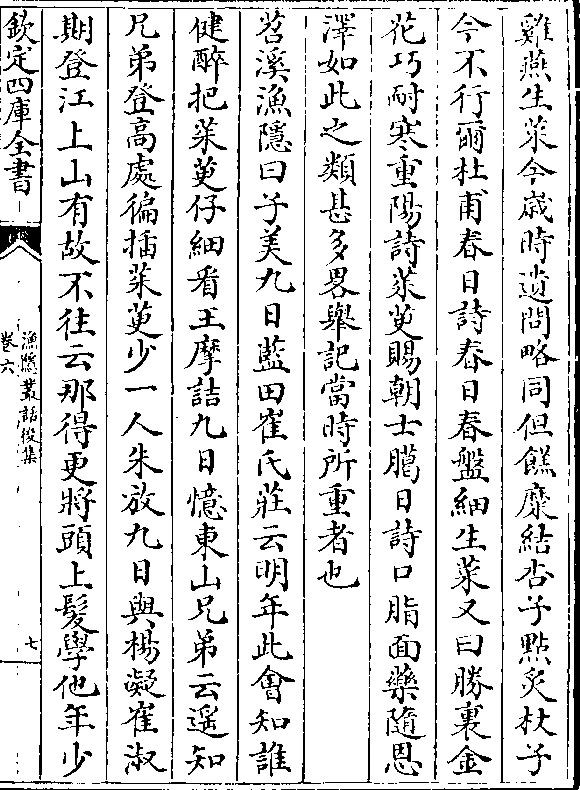 雞燕生菜今歳時遺問略同但餻糜結杏子點炙杖子
今不行爾杜甫春日詩春日春盤細生菜又曰勝裏金
花巧耐寒重陽詩茱萸賜朝士臈日詩口脂面藥隨恩
澤如此之類甚多畧舉記當時所重者也
苕溪漁隱曰子美九日藍田崔氏莊云明年此會知誰
健醉把茱萸仔細看王摩詰九日憶東山兄弟云遥知
兄弟登高處徧插茱萸少一人朱放九日與楊凝崔淑
期登江上山有故不往云那得更將頭上髮學他年少
欽定四庫全書
漁隱叢話後集
卷六
七